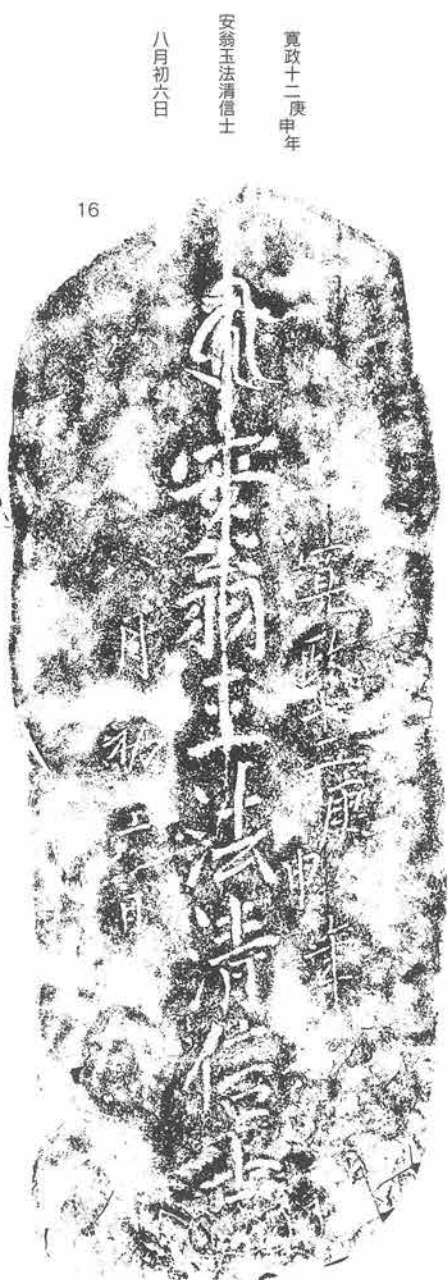 寛政十二庚申年
安翁玉法清信士
八月初六日
16
寛政十二庚申年
安翁玉法清信士
八月初六日